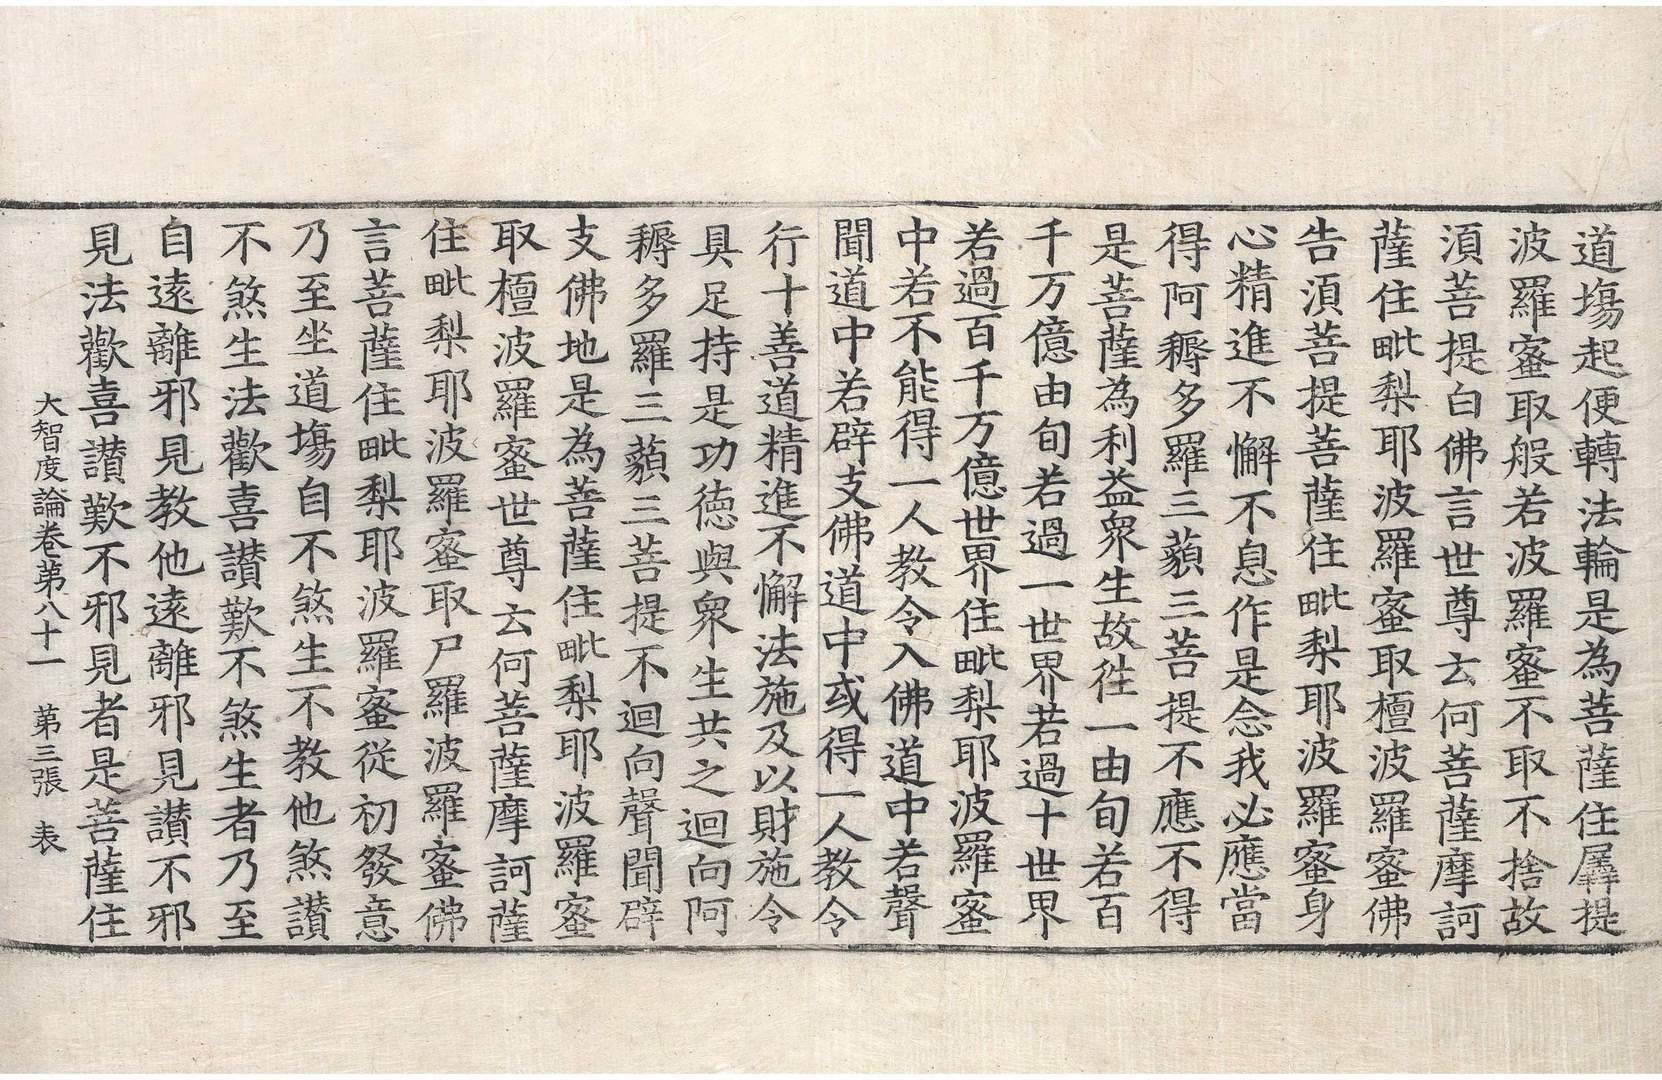 道塲起便轉法輪是為菩薩住羼提
波羅蜜取般若波羅蜜不取不捨故
湏菩提白佛言世尊云何菩薩摩訶
薩住毗梨耶波羅蜜取檀波羅蜜佛
告湏菩提菩薩住毗梨耶波羅蜜身
心精進不懈不息作是念我必應當
得阿耨多羅三藐三菩提不應不得
是菩薩為利益衆生故徃一由旬若百
千万億由旬若過一世界若過十世界
若過百千万億世界住毗梨耶波羅蜜
中若不能得一人教令入佛道中若聲
聞道中若辟支佛道中或得一人教令
行十善道精進不懈法施及以財施令
具足持是功德與衆生共之迴向阿
耨多羅三藐三菩提不迴向聲聞辟
支佛地是為菩薩住毗梨耶波羅蜜
取檀波羅蜜世尊云何菩薩摩訶薩
住毗梨耶波羅蜜取尸羅波羅蜜佛
言菩薩住毗梨耶波羅蜜從初發意
乃至坐道塲自不煞生不教他煞讃
不煞生法歡喜讃歎不煞生者乃至
自遠離邪見教他遠離邪見讃不邪
見法歡喜讃歎不邪見者是菩薩住
大智度論卷第八十一 第三張 表